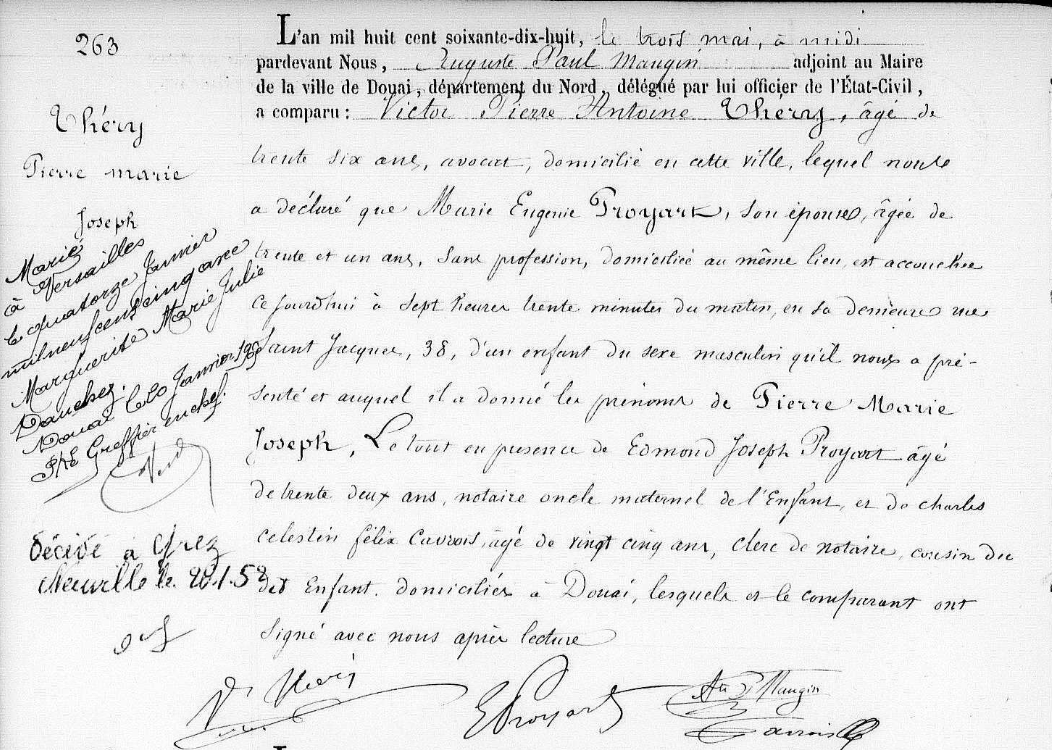 263
Théry
Pierre marie
Joseph
Marié
à Versailles
le quatorze Janvier
mil neuf cent cinq avec
Marguerite Marie Julie
Danchez.
Douai le 20 Janvier 1905
Le Greffier en chef.
décédé à Grez
Neuville le 20.1.52
L'an mil huit cent soixante-dix-huit, le trois mai, à midi
pardevant Nous, Auguste Paul Maugin adjoint au Maire
de la ville de Douai, département du Nord, délégué par lui officier de l'État-Civil,
a comparu : Victor Pierre Antoine Théry, âgé de
trente six ans, avocat, domicilié en cette ville, lequel nous
a déclaré que Marie Eugenie Proyart, son épouse, âgée de
trente et un ans, sans profession, domiciliée au même lieu, est accouchée
ce jourd'hui à sept heures trente minutes du matin, en sa demeure rue
Saint Jacques, 38, d'un enfant du sexe masculin qu'il nous a pré-
senté et auquel il a donné les prénoms de Pierre Marie
Joseph, Le tout en présence de Edmond Joseph Proyart âgé
de trente deux ans, notaire oncle maternel de l'Enfant, et de charles
celestin félix Cavrois, âgé de vingt cinq ans, clerc de notaire, cousin du
dit Enfant. domiciliés à Douai, lesquels et le comparant ont
signé avec nous après lecture
Vr Théry
E Proyart
Ate P Maugin
Cavrois